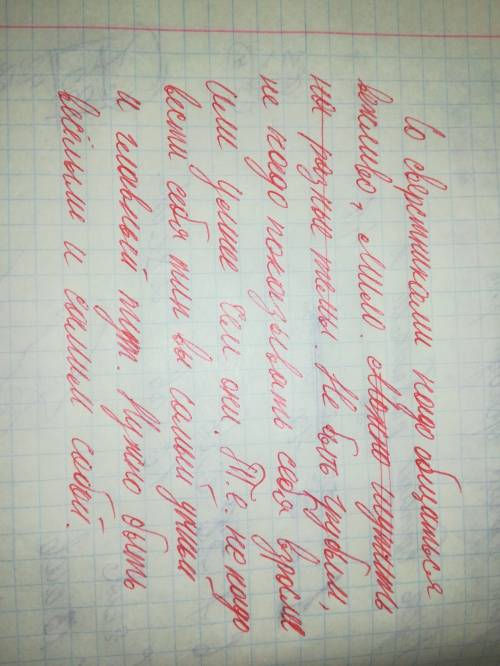 Со сверстниками надо общаться
вежливо, мило. Можно шутить
на разные темы. Не быть грубым,
не надо показывать себя взросле
или умние чем они. Т.е. не надо
вести себя тип вы самый умный
и главный тут. Нужно быть
весёлым и самим собой.